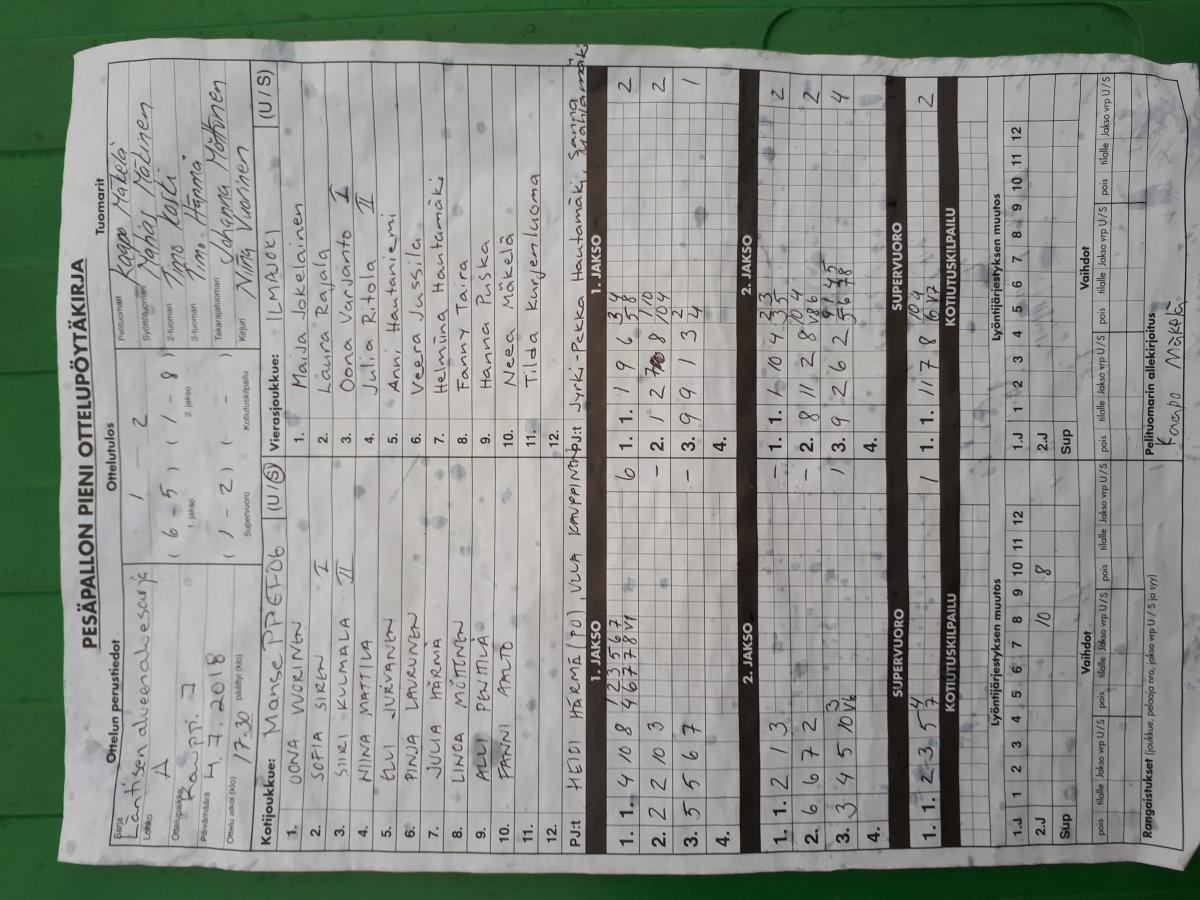 PESÄPALLON PIENI OTTELUPÖYTÄKIRJA
Ottelun perustiedot
Sarja Läntisen alueen aluesarja
Lohko A
Ottelupaikka Kauppi
Päivämäärä 4.7.2018
Ottelu alkoi (klo) 17.30 päättyi (klo)
Ottelutulos
1 – 2
( 6 – 5 ) ( 1 – 8 )
1. jakso 2. jakso
( 1 – 2 ) ( – )
Supervuoro Kotiutuskilpailu
Tuomarit
Pelituomari Kaapo Mäkelä
Syöttötuomari Mäkinen
2-tuomari Timo Koski
3-tuomari Timo Härmä
Takarajatuomari Johanna Möttönen
Kirjuri Nina Vuorinen
Kotijoukkue: Manse PP ET-D6 (U/S)
1. OONA VUORINEN
2. SOFIA SIREN I
3. SIIRI KULMALA II
4. NIINA MATTILA
5. ELLI JURVANEN
6. PINJA LAURUNEN
7. JULIA HÄRMÄ
8. LINDA MÖTTÖNEN
9. ALLI PENTTILÄ
10. FANNI AALTO
11.
12.
PJ:t HEIDI HÄRMÄ (PO) ULLA KAUPPINEN
Vierasjoukkue: ILMAJOKI (U/S)
1. Maija Jokelainen
2. Laura Rajala
3. Oona Varjanto I
4. Julia Ritola II
5. Anni Hautaniemi
6. Veera Jussila
7. Helmiina Hautamäki
8. Fanny Taira
9. Hanna Puska
10. Neea Mäkelä
11. Tilda Kurjenluoma
12.
PJ:t Jyrki-Pekka Hautamäki, Sanna Mahlamäki
1. JAKSO
1. 1. 4 10 8 6
2. 2 2 10 3 –
3. 5 5 6 7 –
4.
1. JAKSO
1. 1. 1 9 6 2
2. 1 2 8 2
3. 9 9 1 3 1
4.
2. JAKSO
1. 1. 2 1 3 –
2. 6 6 7 2 –
3. 3 4 5 10 1
4.
2. JAKSO
1. 1. 1 10 4 2
2. 8 11 2 8 2
3. 9 2 6 2 4
4.
SUPERVUORO
1. 1. 2 3 5 1
SUPERVUORO
1. 1. 11 7 8 2
KOTIUTUSKILPAILU
KOTIUTUSKILPAILU
Lyöntijärjestyksen muutos
1.J 1 2 3 4 5 6 7 8 9 10 11 12
2.J 10 8
Sup
Lyöntijärjestyksen muutos
1.J 1 2 3 4 5 6 7 8 9 10 11 12
2.J
Sup
Vaihdot
pois tilalle Jakso vrp U/S pois tilalle Jakso vrp U/S
Vaihdot
pois tilalle Jakso vrp U/S pois tilalle Jakso vrp U/S
Rangaistukset (joukkue, pelaaja nro, jakso vrp U / S ja syy)
Pelituomarin allekirjoitus
Kaapo Mäkelä